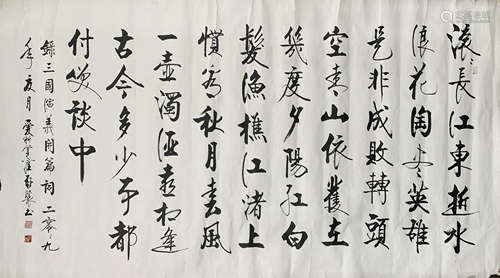 滚滚長江東逝水
浪花淘尽英雄
是非成敗轉頭
空青山依舊在
幾度夕陽红白
髮漁樵江渚上
慣看秋月春風
一壺濁酒喜相逢
古今多少事都
付笑談中
錄三國演義開篇詞 二零一九
年夏月 書